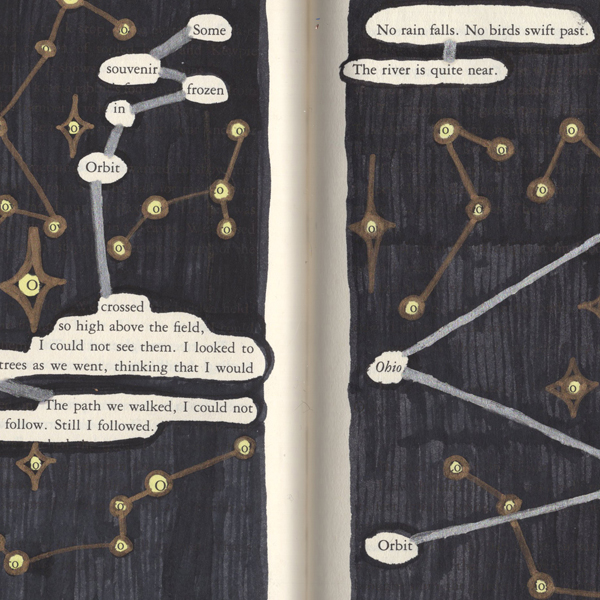 Some
souvenir
frozen
in
Orbit
crossed
so high above the field,
I could not see them. I looked to
trees as we went, thinking that I would
The path we walked, I could not
follow. Still I followed.
No rain falls. No birds swift past.
The river is quite near.
Ohio
Orbit